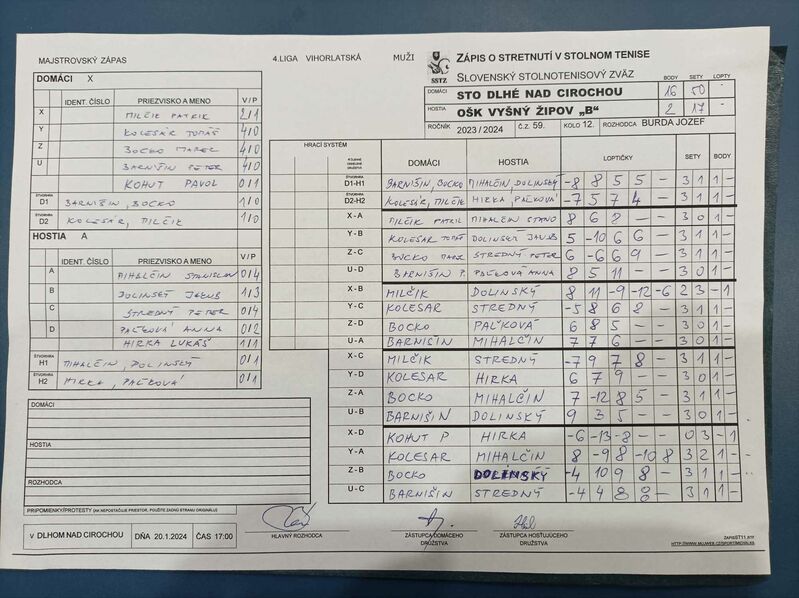 MAJSTROVSKÝ ZÁPAS
4.LIGA VIHORLATSKÁ MUŽI
SSTZ
ZÁPIS O STRETNUTÍ V STOLNOM TENISE
SLOVENSKÝ STOLNOTENISOVÝ ZVÄZ
BODY SETY LOPTY
DOMÁCI STO DLHÉ NAD CIROCHOU 16 50 —
HOSTIA OŠK VYŠNÝ ŽIPOV „B" 2 17 —
ROČNÍK 2023 / 2024 č.z. 59. KOLO 12. ROZHODCA BURDA JOZEF
DOMÁCI X
IDENT. ČÍSLO PRIEZVISKO A MENO V/P
X MILČIK PATRIK 2/1
Y KOLESÁR TOMÁŠ 4/0
Z BOCKO MAREK 4/0
U BARNIŠIN PETER 4/0
KOHUT PAVOL 0/1
ŠTVORHRA D1 BARNIŠIN, BOCKO 1/0
ŠTVORHRA D2 KOLESÁR, MILČIK 1/0
HOSTIA A
IDENT. ČÍSLO PRIEZVISKO A MENO V/P
A MIHALČIN STANISLAV 0/4
B DOLINSKÝ JAKUB 1/3
C STREDNÝ PETER 0/4
D PAĽKOVÁ ANNA 0/2
HIRKA LUKÁŠ 1/1
ŠTVORHRA H1 MIHALČIN, DOLINSKÝ 0/1
ŠTVORHRA H2 HIRKA, PAĽKOVÁ 0/1
DOMÁCI
HOSTIA
ROZHODCA
PRIPOMIENKY/PROTESTY (AK NEPOSTAČUJE PRIESTOR, POUŽITE ZADNÚ STRANU ORIGINÁLU)
HRACÍ SYSTÉM DOMÁCI HOSTIA LOPTIČKY SETY BODY
D1-H1 BARNIŠIN, BOCKO MIHALČIN, DOLINSKÝ -8 8 5 5 — 3 1 1 —
D2-H2 KOLESÁR, MILČIK HIRKA, PAĽKOVÁ -7 5 7 4 — 3 1 1 —
X-A MILČIK PATRIK MIHALČIN STANO 8 6 2 — — 3 0 1 —
Y-B KOLESAR TOMÁŠ DOLINSKÝ JAKUB 5 -10 6 6 — 3 1 1 —
Z-C BOCKO MAREK STREDNÝ PETER 6 -6 6 9 — 3 1 1 —
U-D BARNIŠIN P. PAĽKOVÁ ANNA 8 5 11 — — 3 0 1 —
X-B MILČIK DOLINSKÝ 8 11 -9 -12 -6 2 3 — 1
Y-C KOLESAR STREDNÝ -5 8 6 8 — 3 1 1 —
Z-D BOCKO PAĽKOVÁ 6 8 5 — — 3 0 1 —
U-A BARNIŠIN MIHALČIN 7 7 6 — — 3 0 1 —
X-C MILČIK STREDNÝ -7 9 7 8 — 3 1 1 —
Y-D KOLESAR HIRKA 6 7 9 — — 3 0 1 —
Z-A BOCKO MIHALČIN 7 -12 8 5 — 3 1 1 —
U-B BARNIŠIN DOLINSKÝ 9 3 5 — — 3 0 1 —
X-D KOHUT P HIRKA -6 -13 -8 — — 0 3 — 1
Y-A KOLESAR MIHALČIN 8 -9 8 -10 8 3 2 1 —
Z-B BOCKO DOLINSKÝ -4 10 9 8 — 3 1 1 —
U-C BARNIŠIN STREDNÝ -4 4 8 8 — 3 1 1 —
V DLHOM NAD CIROCHOU DŇA 20.1.2024 ČAS 17:00
HLAVNÝ ROZHODCA
ZÁSTUPCA DOMÁCEHO DRUŽSTVA
ZÁSTUPCA HOSŤUJÚCEHO DRUŽSTVA